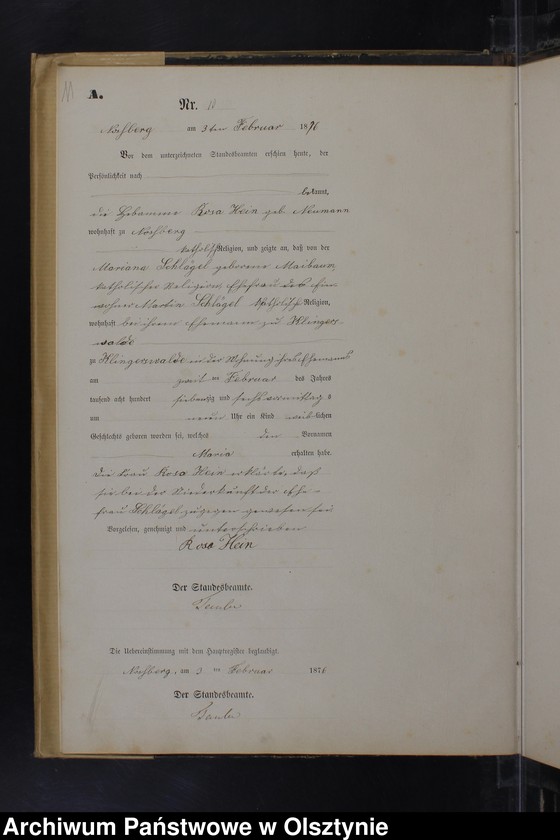 11
A.
Nr. 11
Nosberg am 3ten Februar 1876
Vor dem unterzeichneten Standesbeamten erschien heute, der
Persönlichkeit nach
bekannt,
die Hebamme Rosa Hein geb. Neumann
wohnhaft zu Nosberg
katholischer Religion, und zeigte an, daß von der
Mariana Schlägel geborene Maibaum,
katholischer Religion, Ehefrau des Ein-
wohners Martin Schlägel katholischer Religion,
wohnhaft bei ihrem Ehemann zu Klingers-
walde
zu Klingerswalde in der Wohnung ihres Ehemannes
am zweiten Februar des Jahres
tausend acht hundert siebenzig und sechs vormittags
um neun Uhr ein Kind weiblichen
Geschlechts geboren worden sei, welches den Vornamen
Maria erhalten habe.
die Frau Rosa Hein erklärte, daß
sie bei der Niederkunft der Ehe-
frau Schlägel zugegen gewesen sei
Vorgelesen, genehmigt und unterschrieben
Rosa Hein
Der Standesbeamte.
Die Uebereinstimmung mit dem Hauptregister beglaubigt.
Nosberg, am 3 ten Februar 1876
Der Standesbeamte.
Archiwum Państwowe w Olsztynie